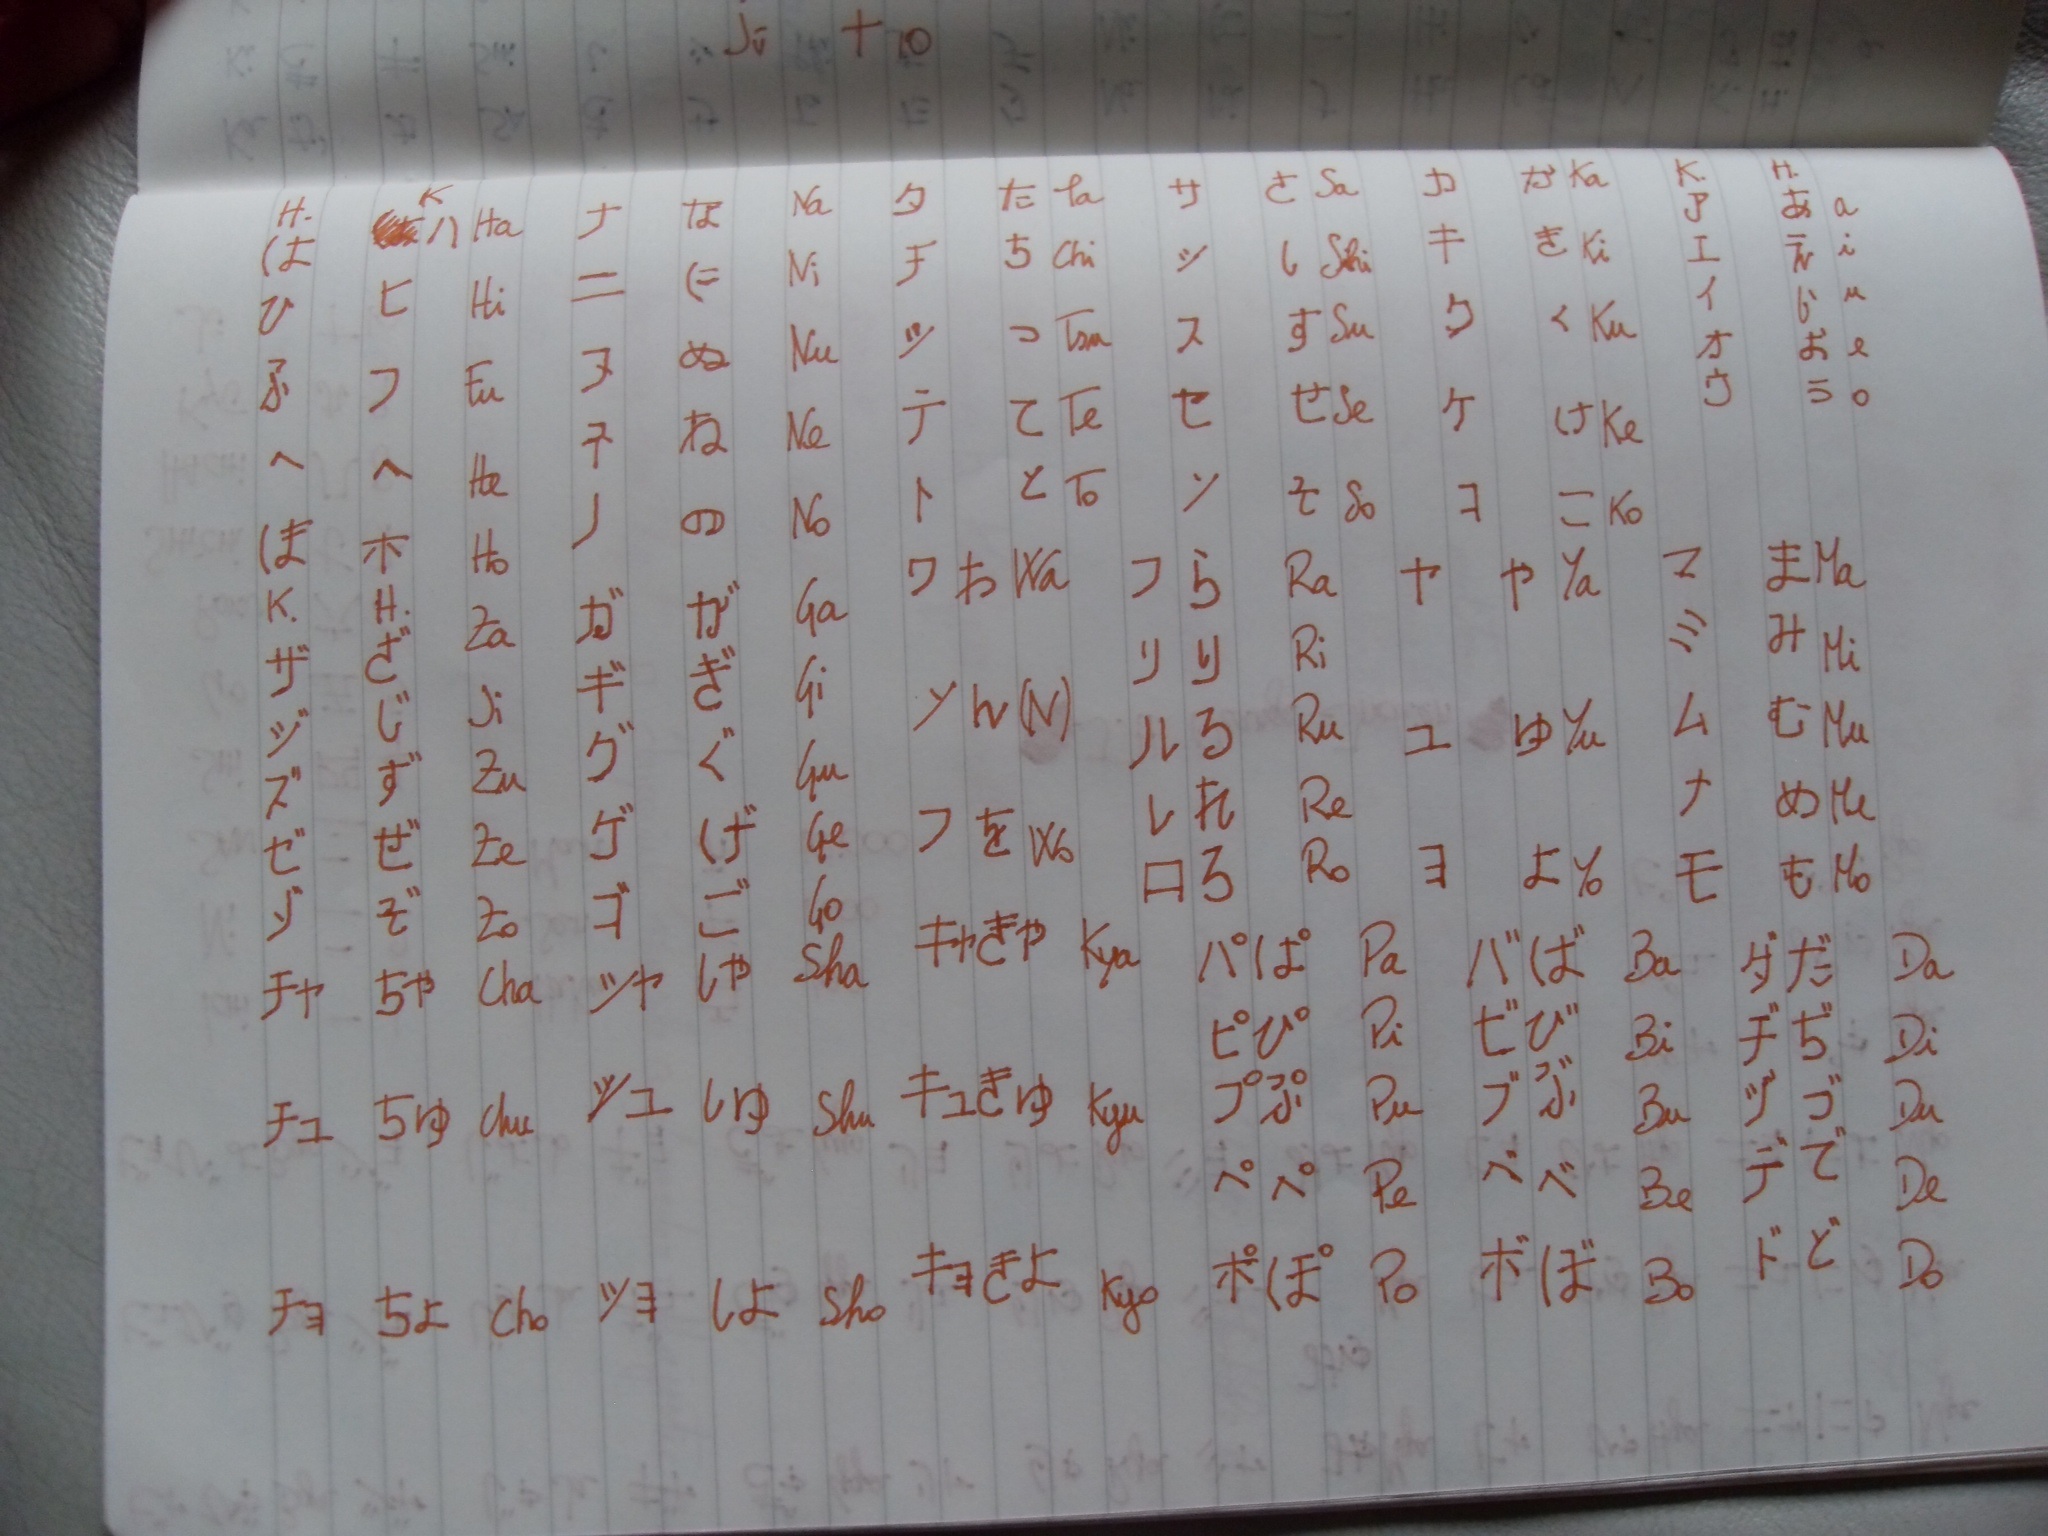 Ji 十 10
H. K K. H.
は ハ Ha ナ な Na タ た Ta サ さ Sa カ か Ka ア あ a
ひ ヒ Hi ニ に Ni チ ち Chi シ し Shi キ き Ki エ え i
ふ フ Fu ヌ ぬ Nu ツ つ Tsu ス す Su ク く Ku イ い u
へ ヘ He ネ ね Ne テ て Te セ せ Se ケ け Ke オ お e
ほ ホ Ho ノ の No ト と To ソ そ So コ こ Ko ウ う o
K. H.
ザ ざ Za ガ が Ga ワ わ Wa ラ ら Ra ヤ や Ya マ ま Ma
ジ じ Ji ギ ぎ Gi リ り Ri ミ み Mi
ズ ず Zu グ ぐ Gu ン ん (N) ル る Ru ユ ゆ Yu ム む Mu
ゼ ぜ Ze ゲ げ Ge ヲ を Wo レ れ Re ナ め Me
ゾ ぞ Zo ゴ ご Go ロ ろ Ro ヨ よ Yo モ も Mo
チャ ちゃ Cha シャ しゃ Sha キャ きゃ Kya パ ぱ Pa バ ば Ba ダ だ Da
ピ ぴ Pi ビ び Bi ヂ ぢ Di
チュ ちゅ Chu シュ しゅ Shu キュ きゅ Kyu プ ぷ Pu ブ ぶ Bu ヅ づ Du
ペ ぺ Pe ベ べ Be デ で De
チョ ちょ Cho ショ しょ Sho キョ きょ Kyo ポ ぽ Po ボ ぼ Bo ド ど Do